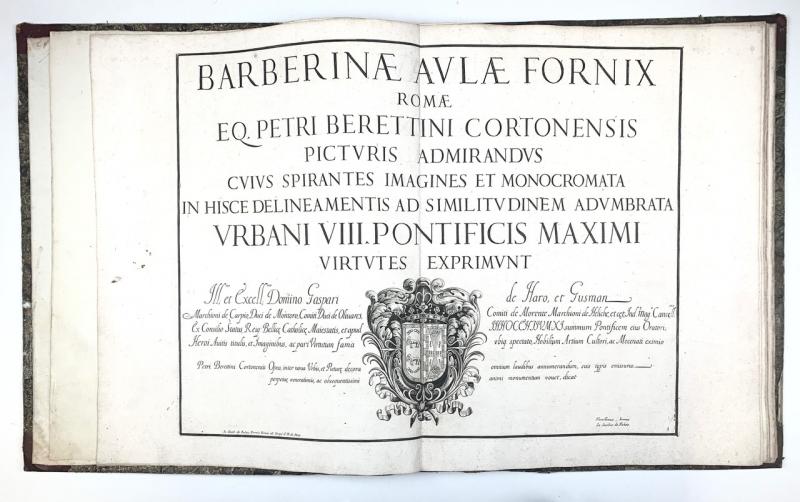 BARBERINÆ AVLÆ FORNIX
ROMÆ
EQ. PETRI BERETTINI CORTONENSIS
PICTVRIS ADMIRANDVS
CVIVS SPIRANTES IMAGINES ET MONOCROMATA
IN HISCE DELINEAMENTIS AD SIMILITVDINEM ADVMBRATA
VRBANI VIII. PONTIFICIS MAXIMI
VIRTVTES EXPRIMVNT
Ill. et Excell. Domino Gaspari de Haro, et Gusman
Marchioni de Carpio, Duci de Montoro, Comiti Duci de Olivares, Comiti de Morente Marchioni de Heliche, et cæt. Ind. Mag. Canc.
Ex Consilio Status Reig. Bellicæ Catholicæ Maiestatis, et apud summum Pontificem eius Oratori.
Heroi Avitis titulis, et Imaginibus, ac pari Virtutum fama ubiq. spectato, Nobilium Artium Cultori, ac Mecenati eximio
Petri Berettini Cortonensis Opus, inter noua Vrbis, et Picturæ decora omnium laudibus annumerandum, suis typis emissum
perpetuæ venerationis, ac obsequentissimi animi monumentum vouet, dicat